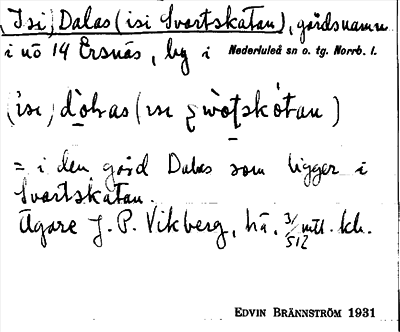 (Isi) Dalas (isi Svartskatan), gårdsnamn
i nö 14 Ersnäs, by i Nederluleå sn o. tg. Norrb. l.
= i den gård Dalas som ligger i
Svartskatan.
Ägare J. P. Vikberg, hä, 3/512 mtl. kr.
EDVIN BRÄNNSTRÖM 1931